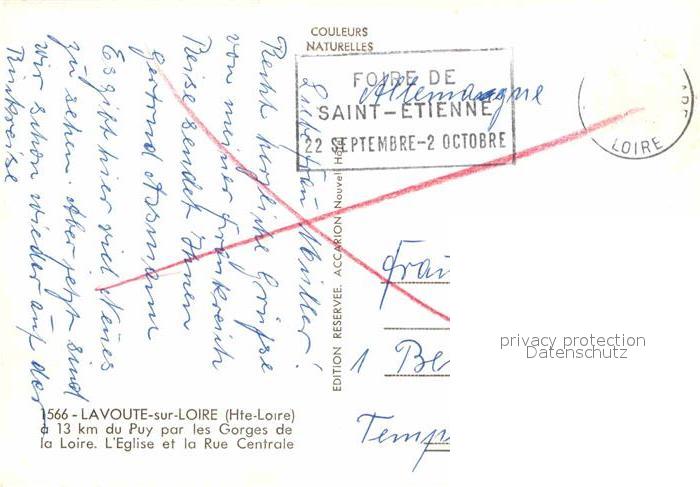 COULEURS
NATURELLES
FOIRE DE
SAINT-ETIENNE
22 SEPTEMBRE-2 OCTOBRE
LOIRE
Allemangne
Liebe Frau Müller!
Recht herzliche Grüsse
von meiner Frankreich
Reise sendet Ihnen
Gertrud
Es gibt hier viel Neues
zu sehen. Aber jetzt sind
wir schon wieder auf der
Rückreise
EDITION RESERVEE. ACCARION Nouvel Hôtel
Frau
1 Be
Temp
privacy protection
Datenschutz
1566 - LAVOUTE-sur-LOIRE (Hte-Loire)
à 13 km du Puy par les Gorges de
la Loire. L'Eglise et la Rue Centrale